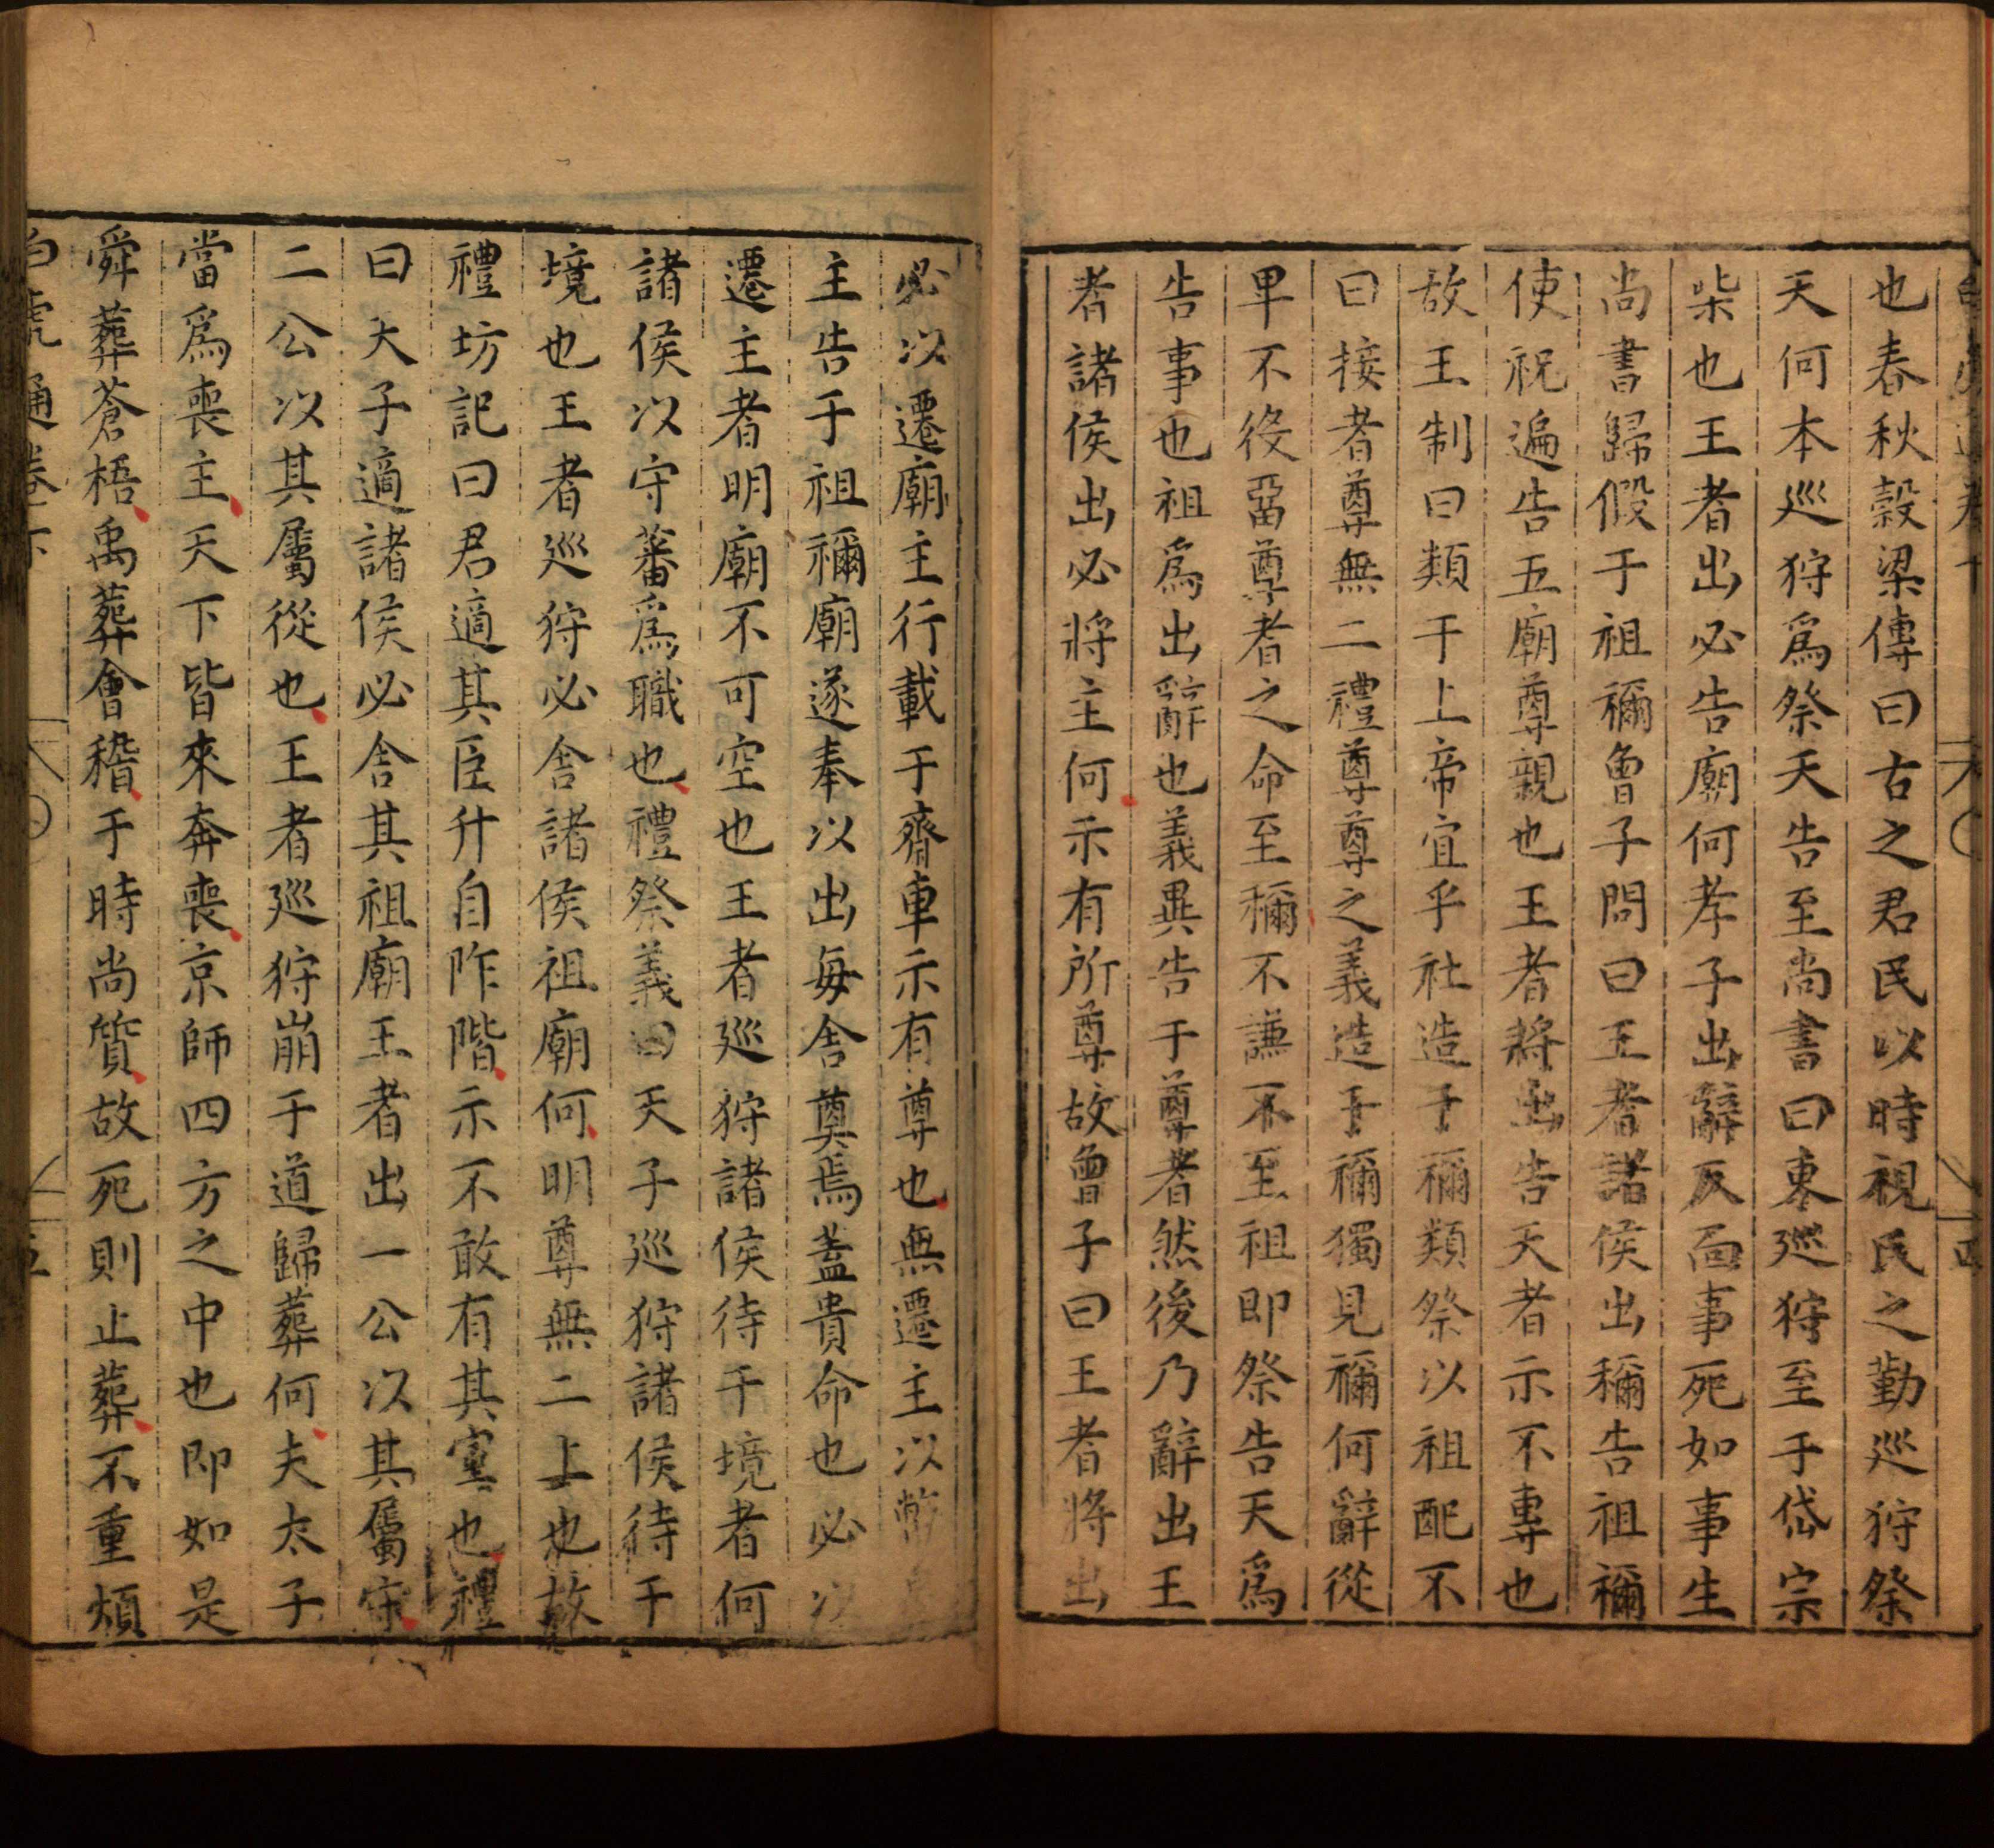 也春秋穀梁傳曰古之君民以時視民之勤巡狩祭
天何本巡狩爲祭天告至尚書曰東巡狩至于岱宗
柴也王者出必告廟何孝子出辭反面事死如事生
尚書歸假于祖禰曾子問曰王者諸侯出稱告祖禰
使祝遍告五廟尊親也王者將出告天者示不專也
故王制曰類于上帝宜乎社造于禰類祭以祖配不
曰接者尊無二禮尊尊之義造于禰獨見禰何辭從
卑不役畱尊者之命至禰不謙不至祖即祭告天爲
告事也祖爲出辭也義異告于尊者然後乃辭出王
者諸侯出必將主何示有所尊故曾子曰王者將出
必以遷廟主行載于齊車示有尊也無遷主以幣
主告于祖禰廟遂奉以出每舍奠焉蓋貴命也必以
遷主者明廟不可空也王者巡狩諸侯待于境者何
諸侯以守蕃爲職也禮祭義曰天子巡狩諸侯待于
境也王者巡狩必舍諸侯祖廟何明尊無二上也故
禮坊記曰君適其臣升自阼階示不敢有其室也禮
曰天子適諸侯必舍其祖廟王者出一公以其屬守
二公以其屬從也王者巡狩崩于道歸葬何夫太子
當爲喪主天下皆來奔喪京師四方之中也即如是
舜葬蒼梧禹葬會稽于時尚質故死則止葬不重煩
白虎通卷下 五